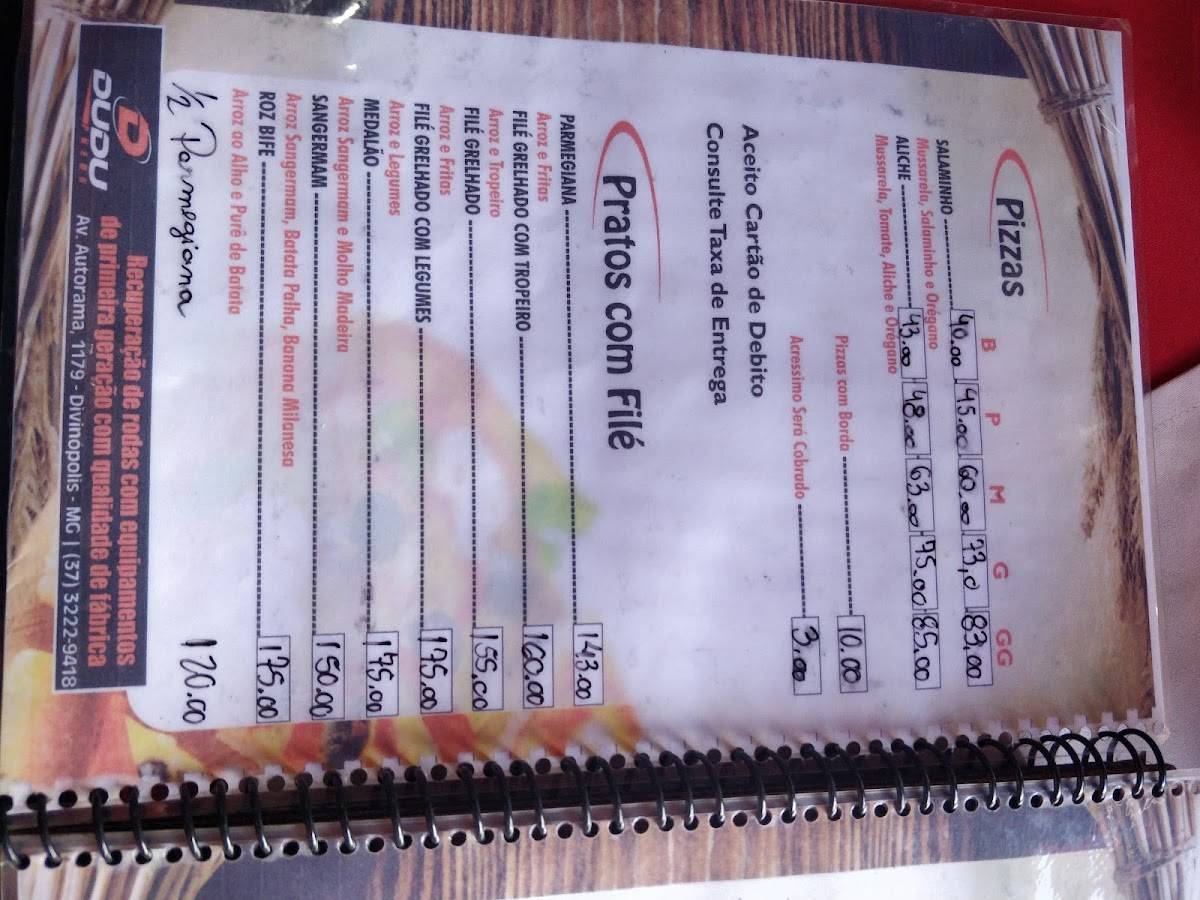 Pizzas
B P M G GG
SALAMINHO 40.00 45.00 60.00 73,0 83,00
Mussarela, Salaminho e Orégano
ALICHE 43.00 48.00 63.00 75.00 85.00
Mussarela, Tomate, Aliche e Orégano
Pizzas com Borda 10.00
Acressimo Será Cobrado 3.00
Aceito Cartão de Debito
Consulte Taxa de Entrega
Pratos com Filé
PARMEGIANA 143.00
Arroz e Fritas
FILÉ GRELHADO COM TROPEIRO 160.00
Arroz e Tropeiro
FILÉ GRELHADO 155.00
Arroz e Fritas
FILÉ GRELHADO COM LEGUMES 175.00
Arroz e Legumes
MEDALÃO 175,00
Arroz Sangermam e Molho Madeira
SANGERMAM 150.00
Arroz Sangermam, Batata Palha, Banana Milanesa
ROZ BIFE 175.00
Arroz ao Alho e Purê de Batata
1/2 Parmegiana 120.00
DUDU
PNEUS
Recuperação de rodas com equipamentos
de primeira geração com qualidade de fábrica
Av. Autorama, 1179 - Divinopolis - MG | (37) 3222-9418